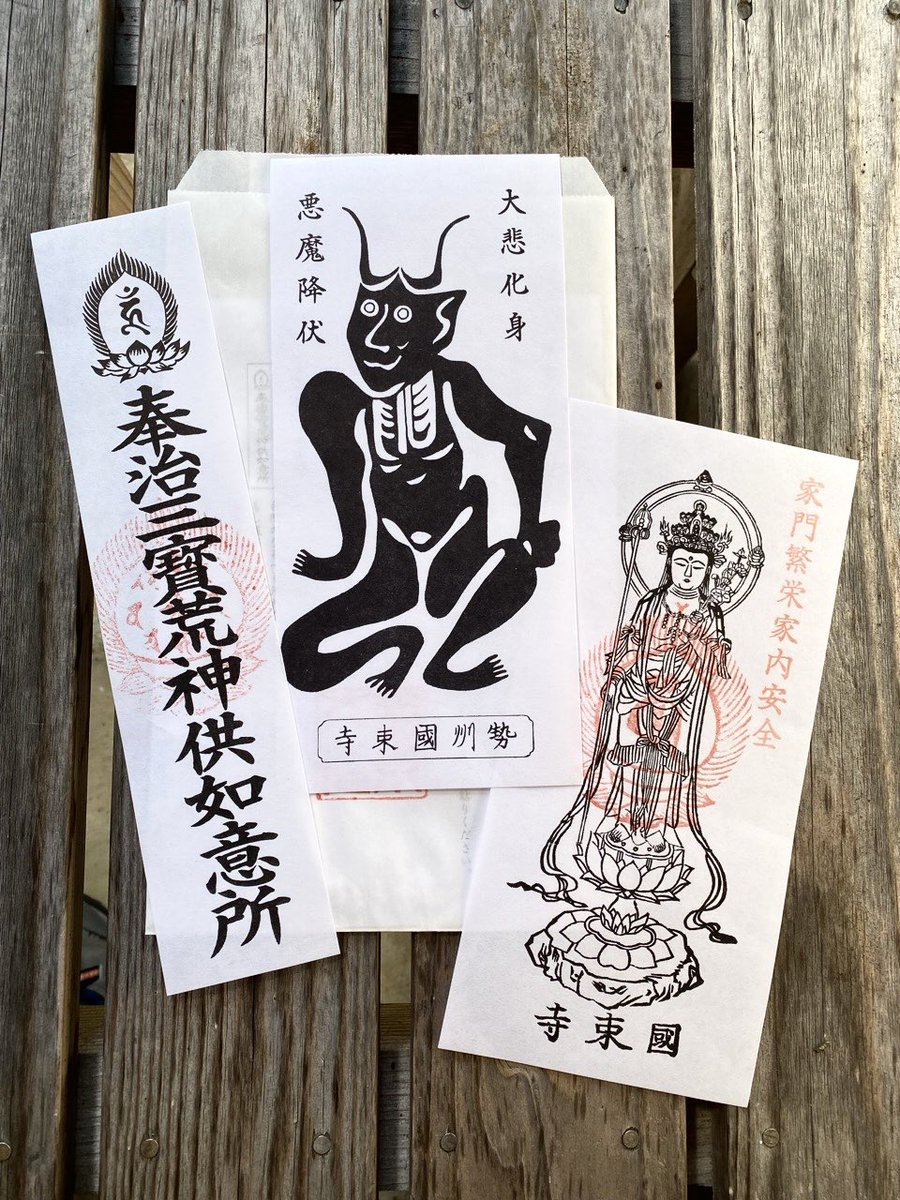 奉治三寶荒神供如意所
大悲化身
悪魔降伏
勢州國束寺
家門繁栄家内安全
國束寺